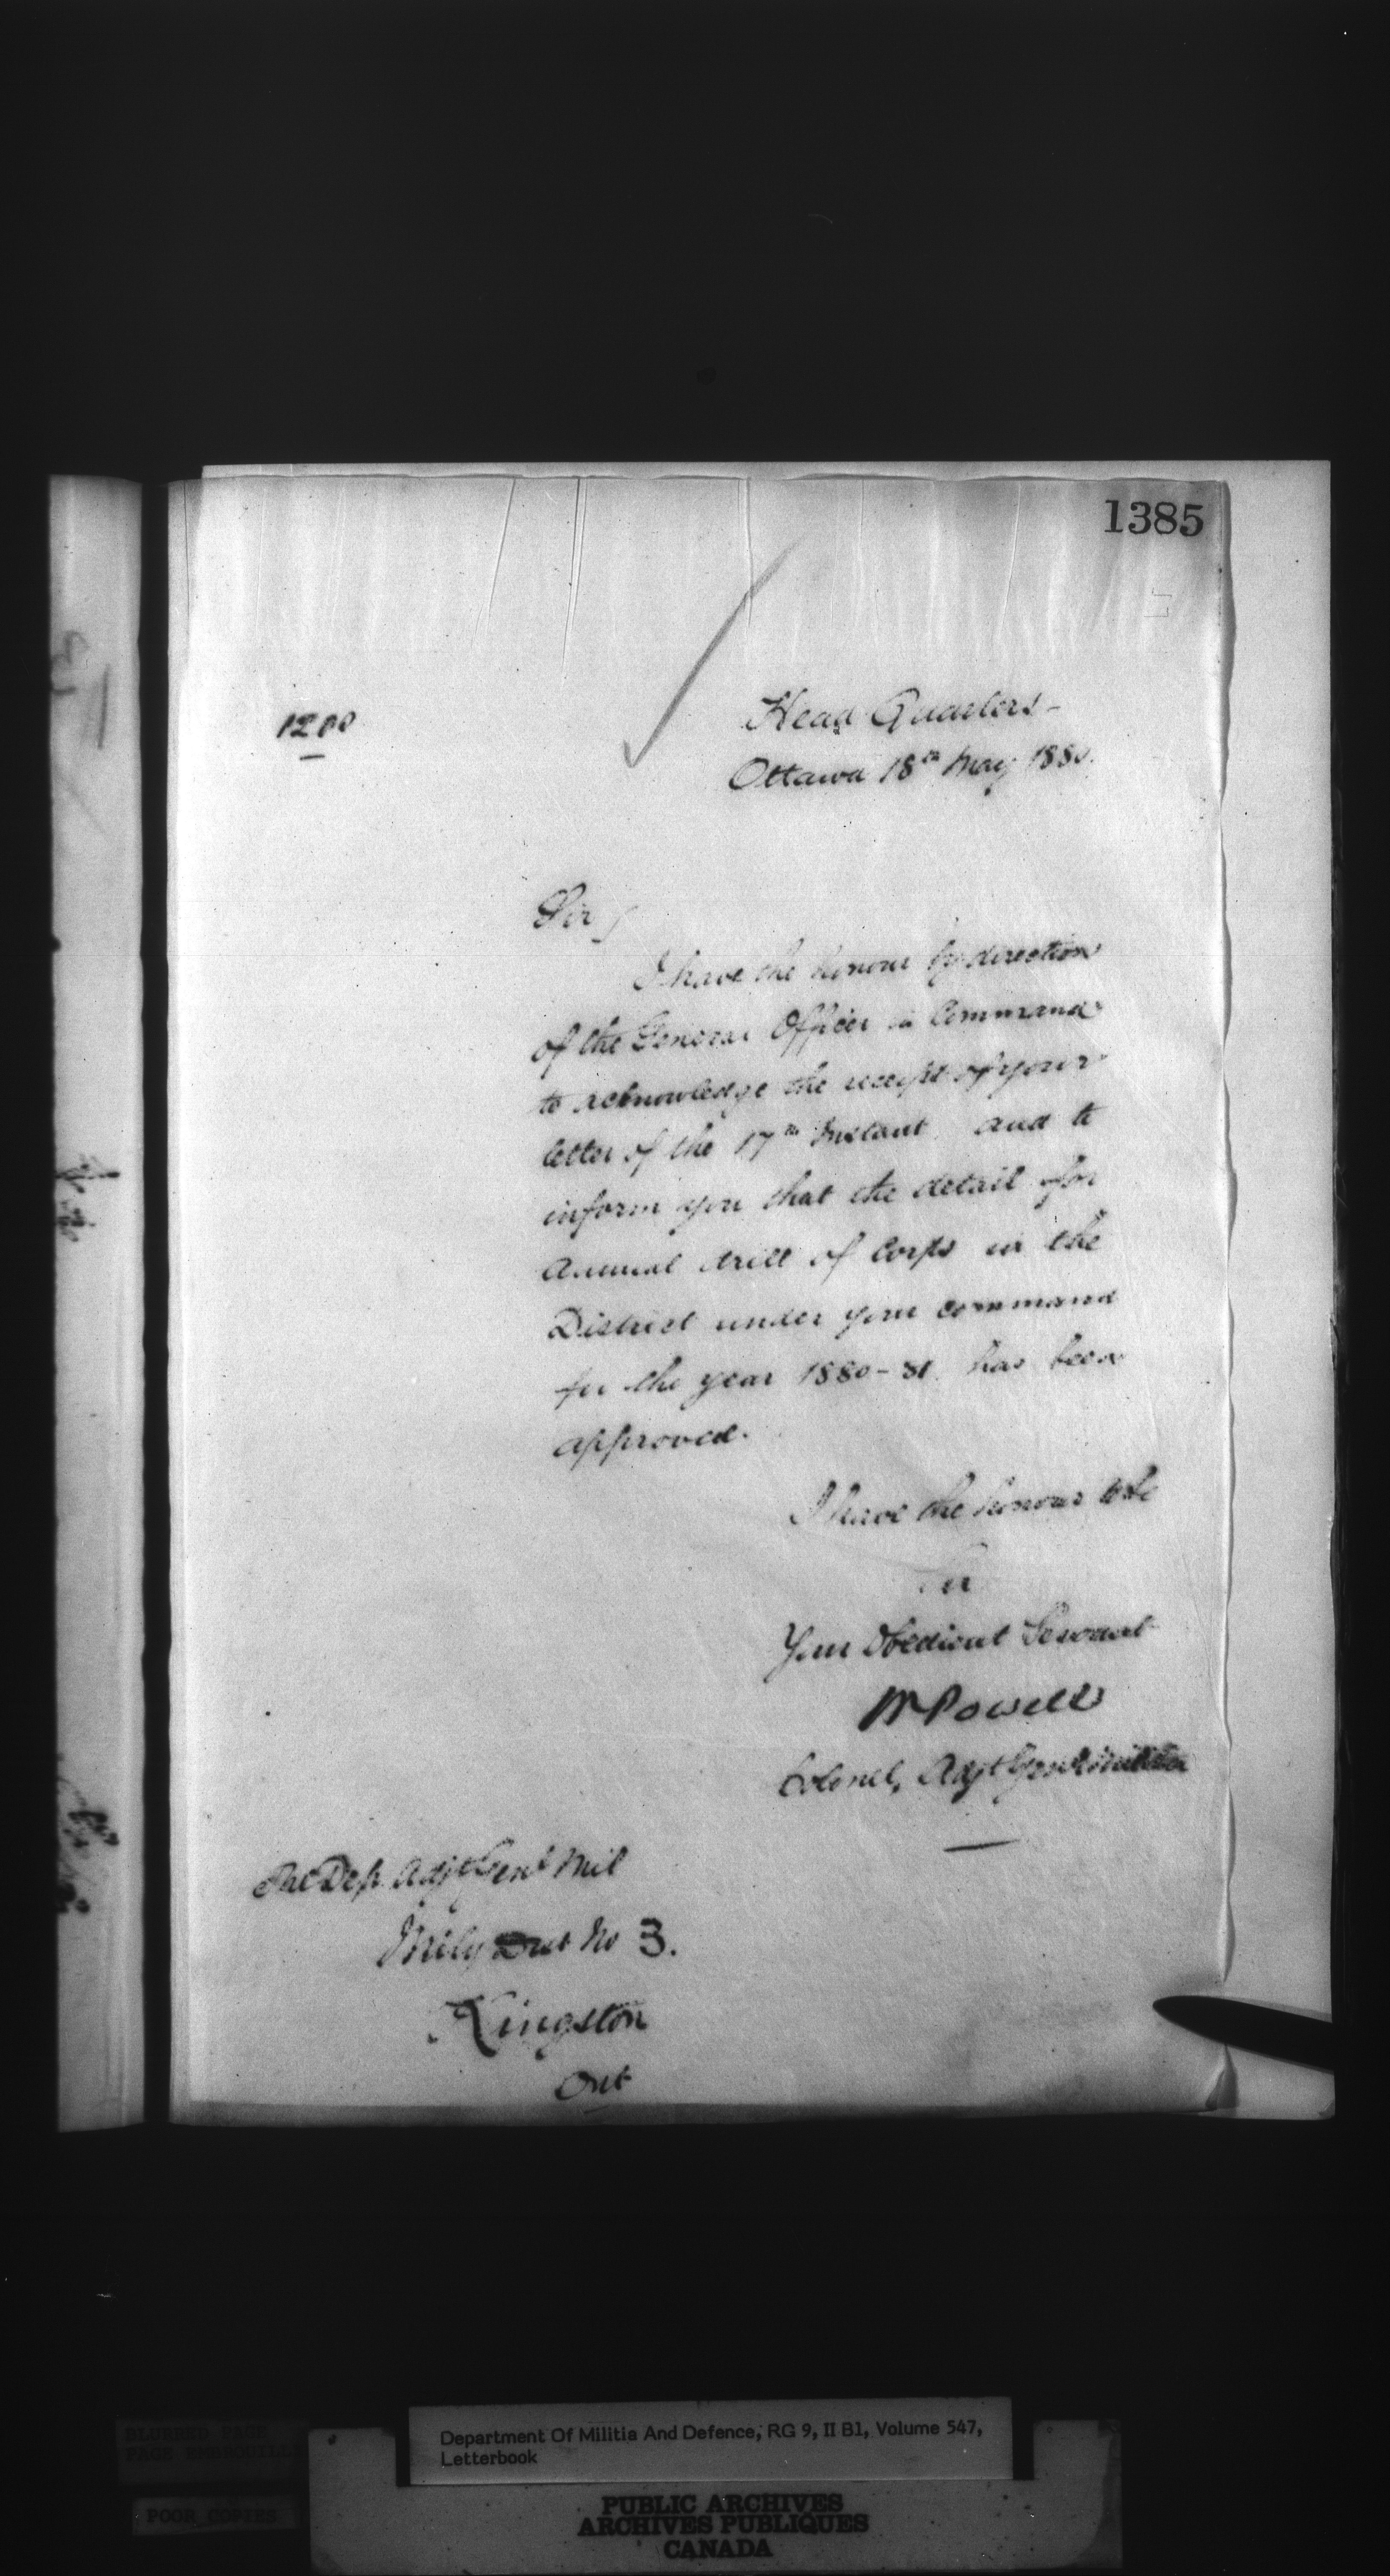 1385
Head Quarters-
Ottawa 18th May 1880.
Sir,
I have the honour by direction
of the General Officer in Command
to acknowledge the receipt of your
letter of the 17th Instant and to
inform you that the detail for
annual drill of Corps in the
District under your command
for the year 1880-81 has been
approved.
I have the honour to be
Sir
Your Obedient Servant
W Powell
Colonel, Adjt Genl Militia
The Dep Adjt Genl Mil
Mily Dist No 3.
Kingston
Ont
Department Of Militia And Defence, RG 9, II B1, Volume 547,
Letterbook
BLURRED PAGE
POOR COPIES
PUBLIC ARCHIVES
ARCHIVES PUBLIQUES
CANADA